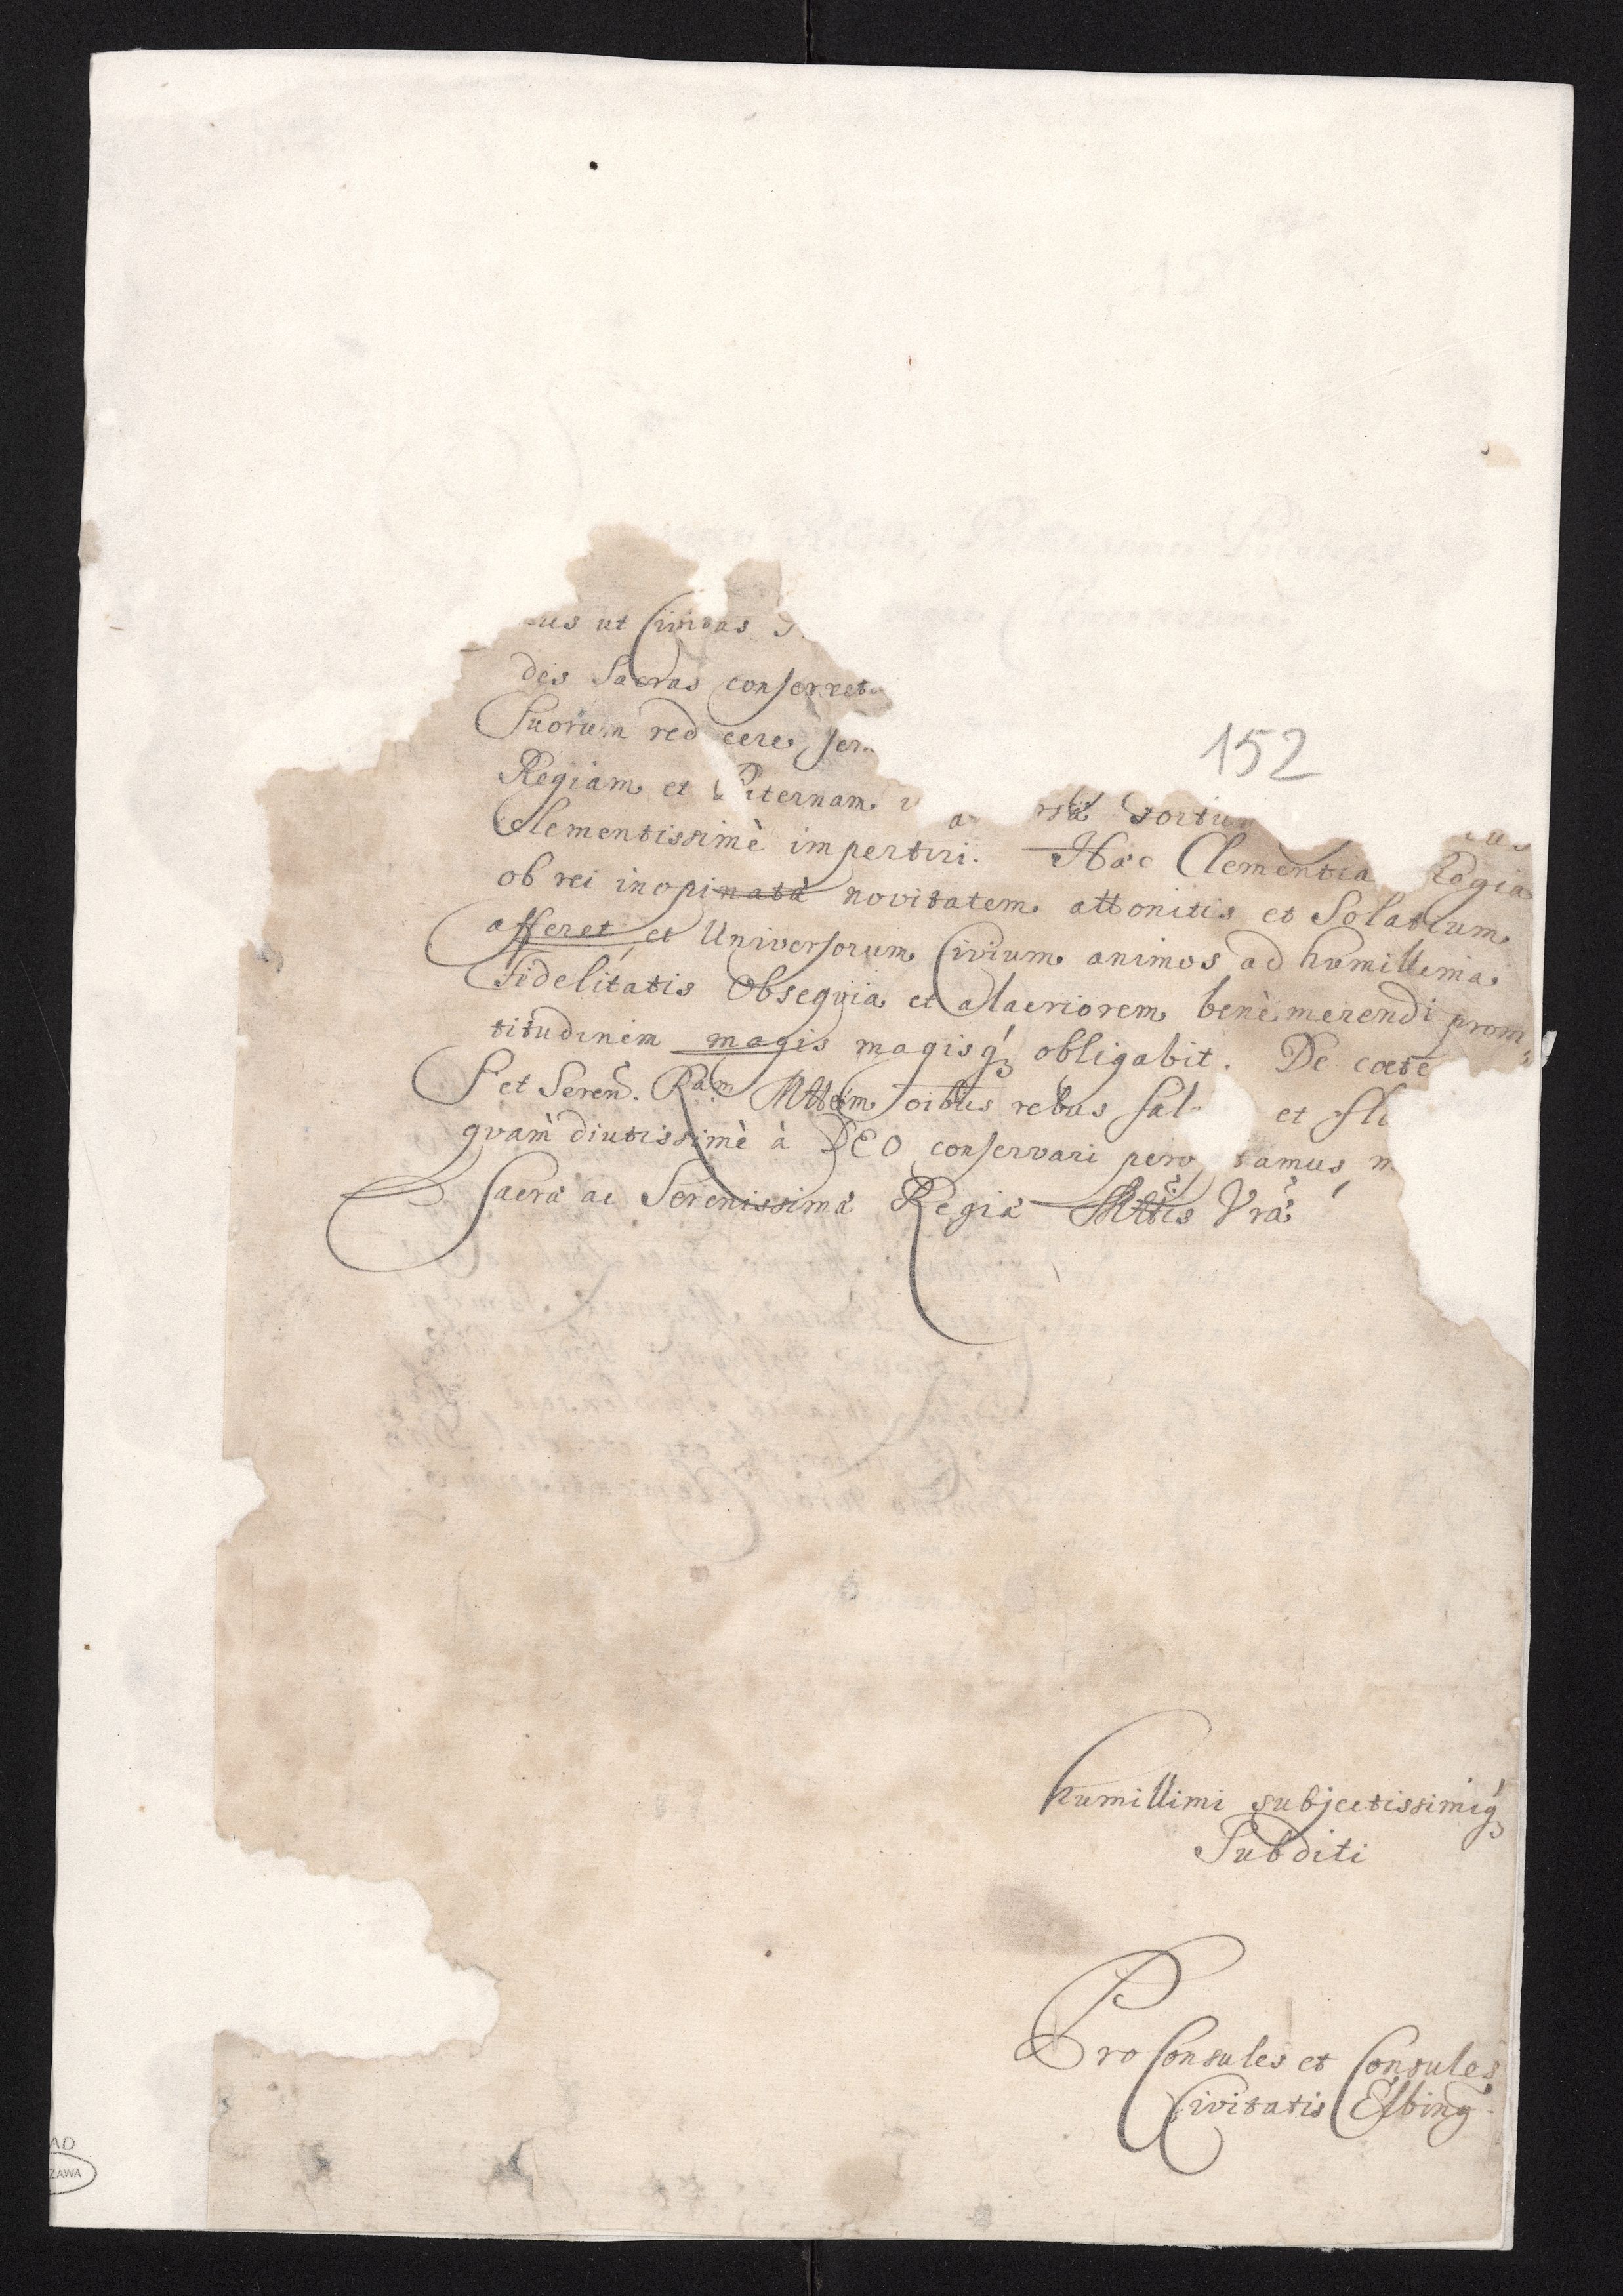 us ut Civibus
des Sacras conserret
Suorum red cere
Regiam et Paternam
152
Clementissimè impertiri. Hæc Clementia Regia
ob rei inopinatà novitatem attonitis et Solatium
afferet, et Universorum Civium animos ad humillima
Fidelitatis Obseqvia et alacriorem benè merendi prom
titudinem magis magisq́ꝫ obligabit. De cœte
S et Sereñ. R.am Mttem oibus rebus sal et
qvam diutissimè à DEO conservari pero tamus,
Sacræ ac Serenissimæ Regiæ Mttis Vræ
humillimi subjectissimiq́ꝫ
Subditi
ProConsules et Consules
Civitatis Elbing
AD
ZAWA